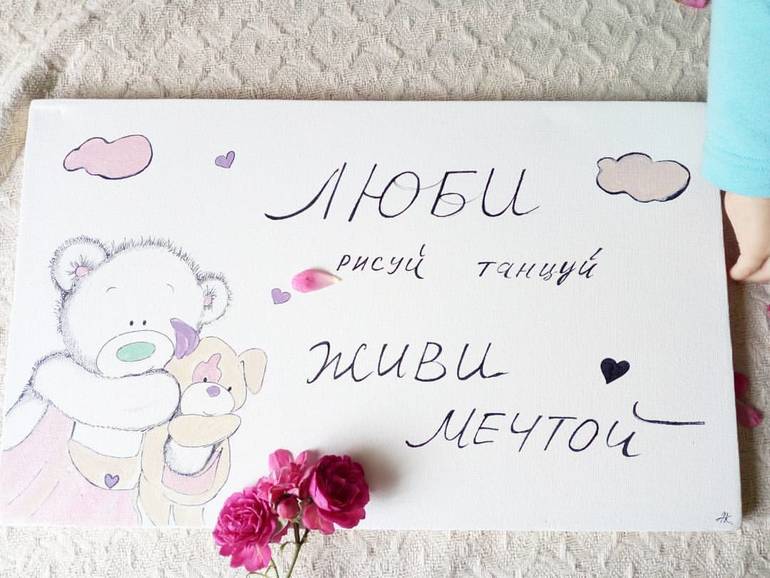 ЛЮБИ
рисуй танцуй
ЖИВИ
МЕЧТОЙ
АК